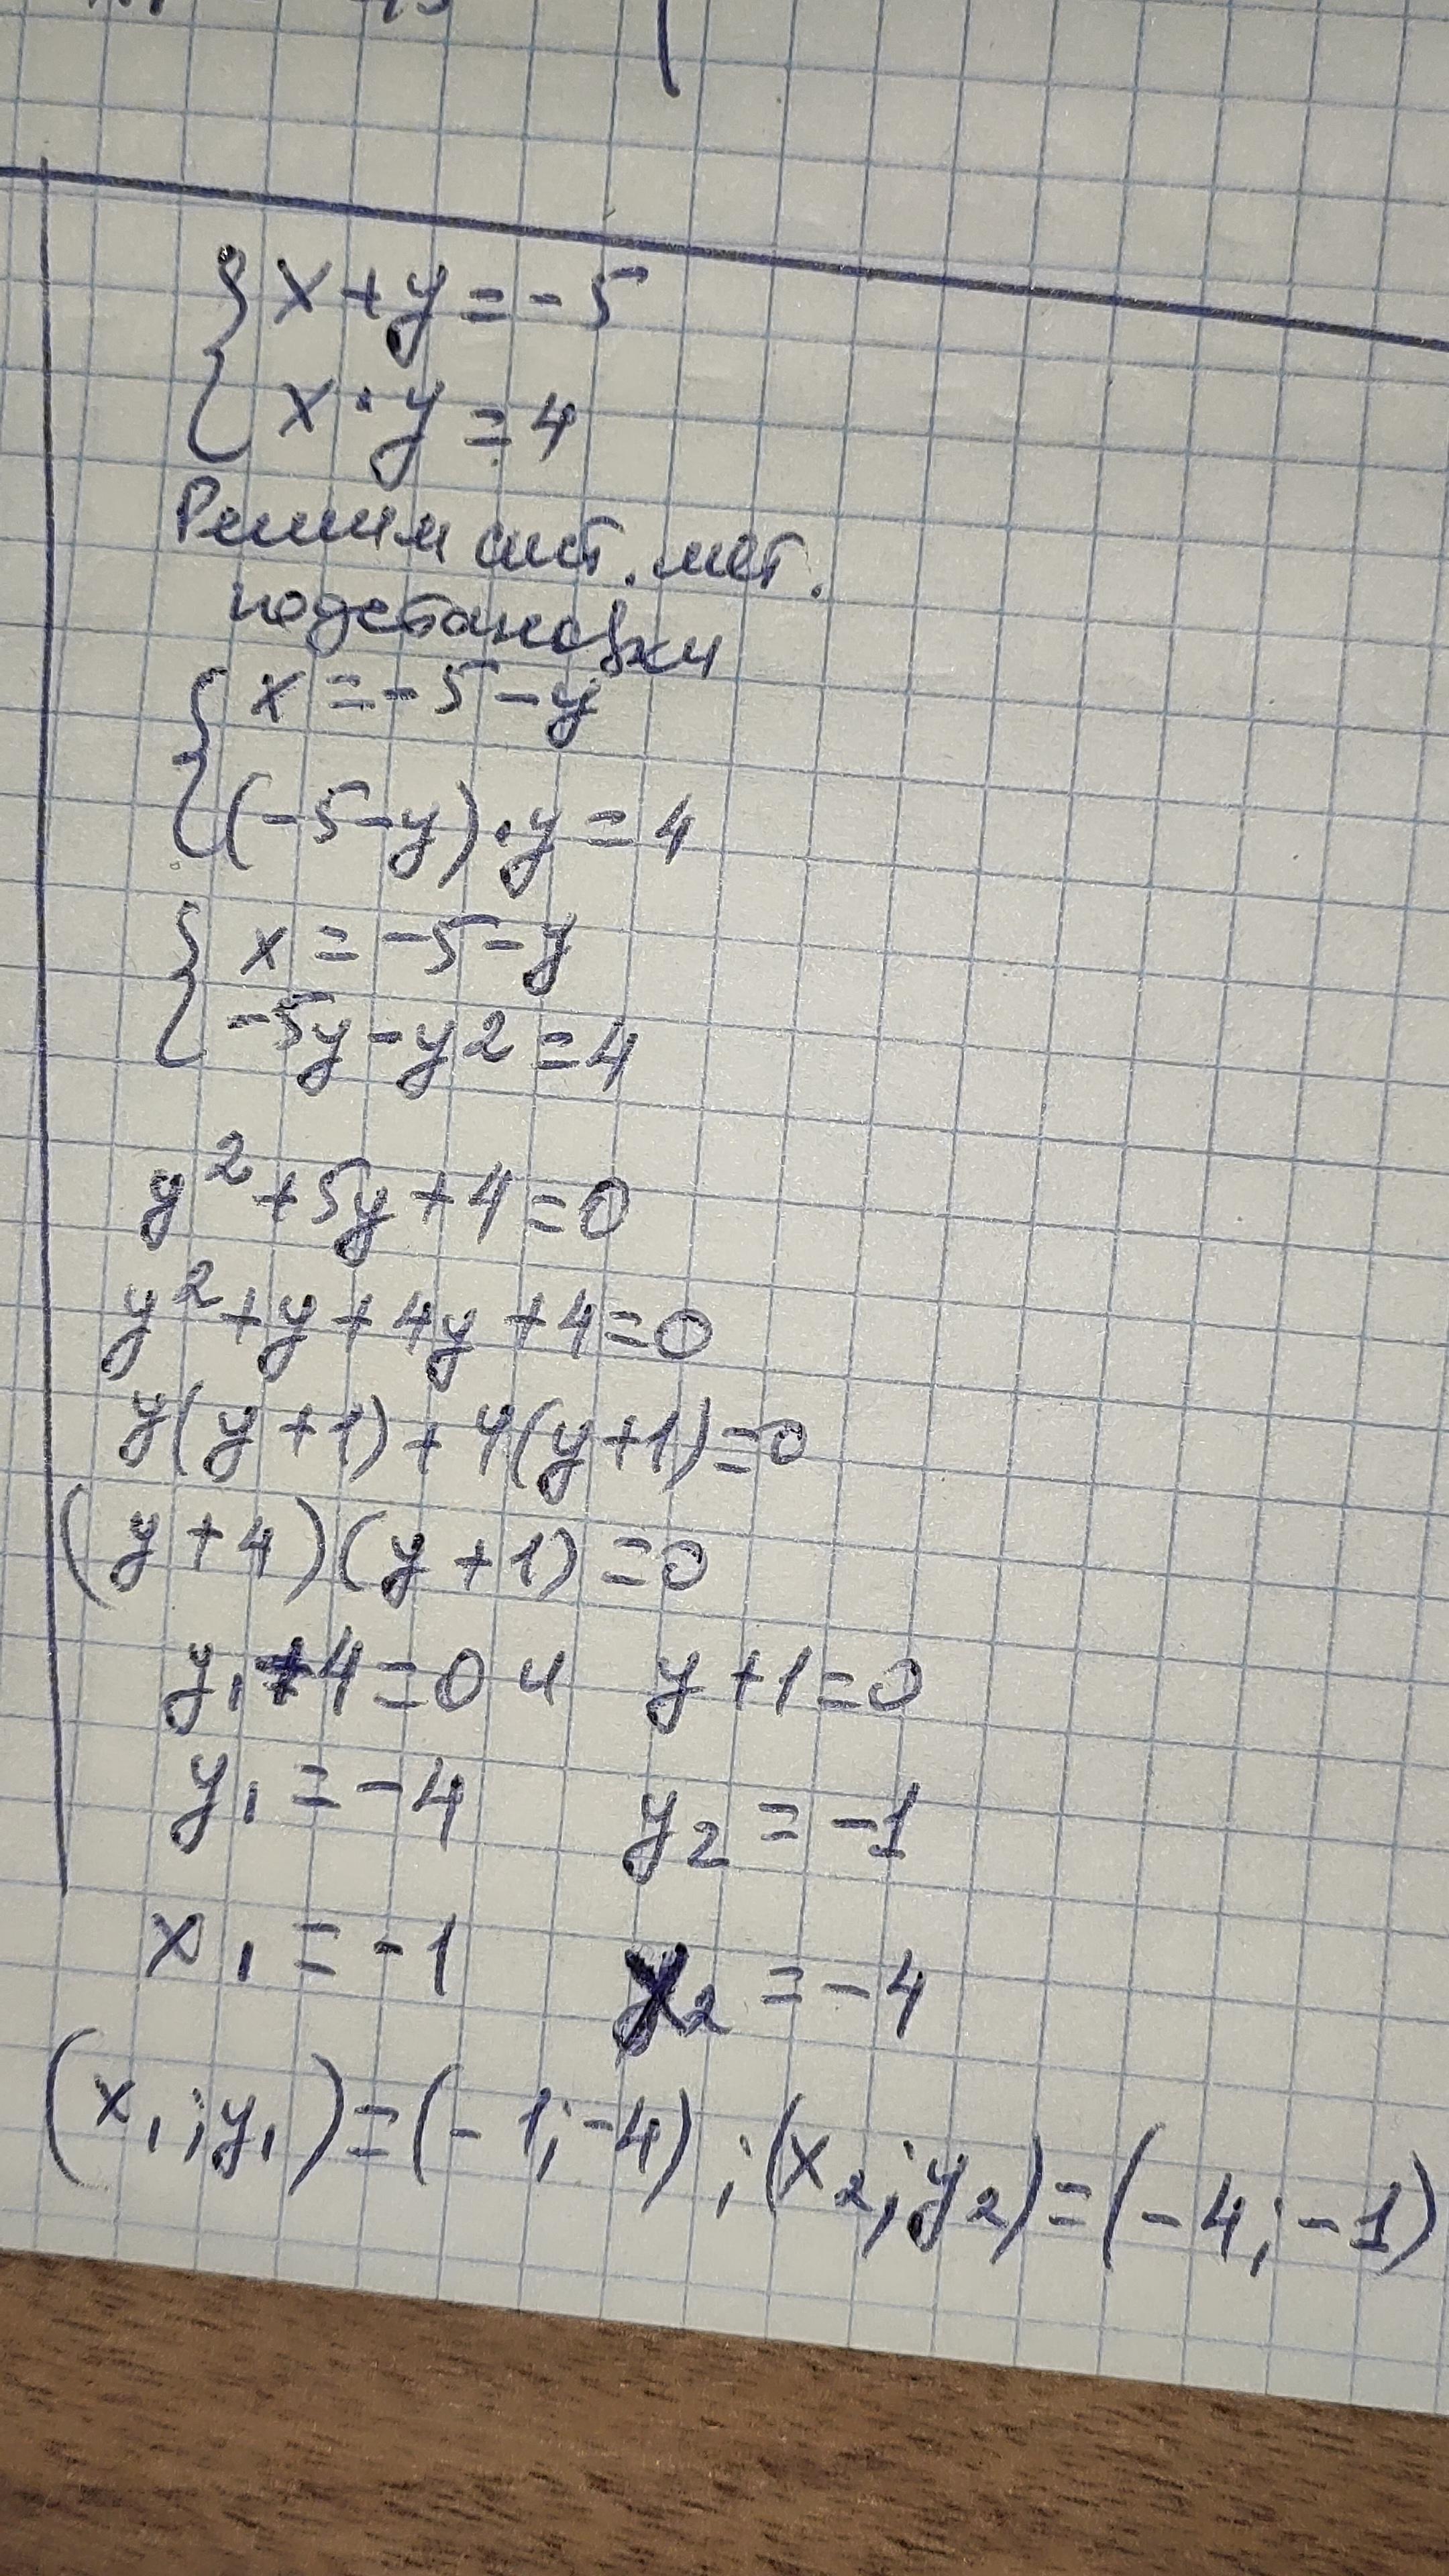 { x + y = -5
x · y = 4
Решим сист. мет.
подстановки
{ x = -5 - y
(-5-y) · y = 4
{ x = -5 - y
-5y - y2 = 4
y² + 5y + 4 = 0
y² + y + 4y + 4 = 0
y(y+1) + 4(y+1) = 0
(y+4)(y+1) = 0
y₁ + 4 = 0 и y + 1 = 0
y₁ = -4 y₂ = -1
x₁ = -1 x₂ = -4
(x₁; y₁) = (-1; -4) ; (x₂; y₂) = (-4; -1)